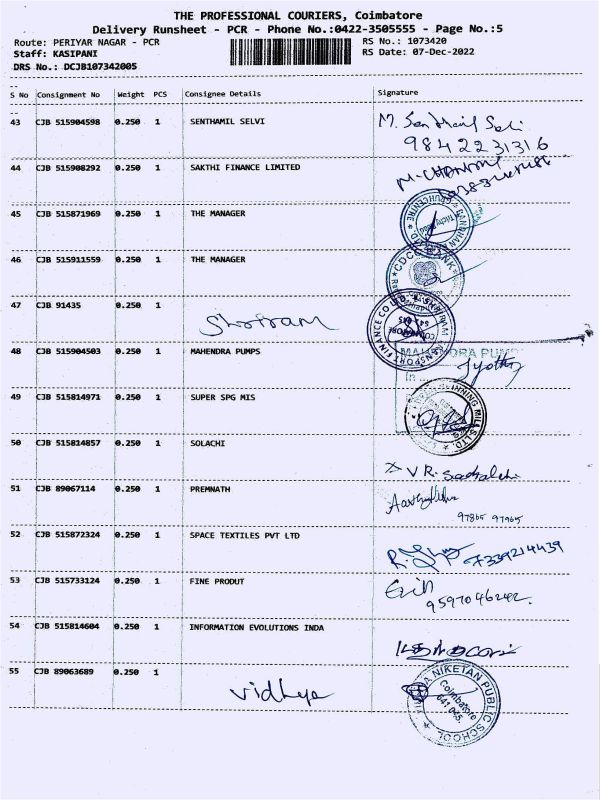 THE PROFESSIONAL COURIERS, Coimbatore
Delivery Runsheet - PCR - Phone No.:0422-3505555 - Page No.:5
Route: PERIYAR NAGAR - PCR RS No.: 1073420
Staff: KASIPANI RS Date: 07-Dec-2022
DRS No.: DCJB107342005
S No Consignment No Weight PCS Consignee Details Signature
43 CJB 515904598 0.250 1 SENTHAMIL SELVI M. Senthamil Selvi
9842231316
44 CJB 515908292 0.250 1 SAKTHI FINANCE LIMITED
45 CJB 515871969 0.250 1 THE MANAGER
46 CJB 515911559 0.250 1 THE MANAGER CDCC BANK
47 CJB 91435 0.250 1 Shriram
48 CJB 515904503 0.250 1 MAHENDRA PUMPS MAHENDRA PUMP
Jyothy
49 CJB 515814971 0.250 1 SUPER SPG MIS
50 CJB 515814857 0.250 1 SOLACHI
51 CJB 89067114 0.250 1 PREMNATH
97865 97965
52 CJB 515872324 0.250 1 SPACE TEXTILES PVT LTD 7339214439
53 CJB 515733124 0.250 1 FINE PRODUT
9597046242
54 CJB 515814604 0.250 1 INFORMATION EVOLUTIONS INDA
55 CJB 89063689 0.250 1 Vidhya NIKETAN PUBLIC SCHOOL
Coimbatore
641 045.